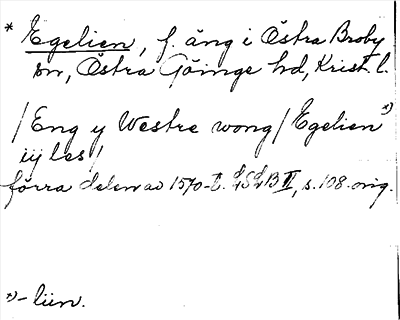 * Egelien, f. äng i Östra Broby
sn, Östra Göinge hd, Krist. l.
/Eng y Westre wong/ Egelien *)
iij les/
förra delen av 1570-t. LSLB II, s. 108. orig.
*) -liin.